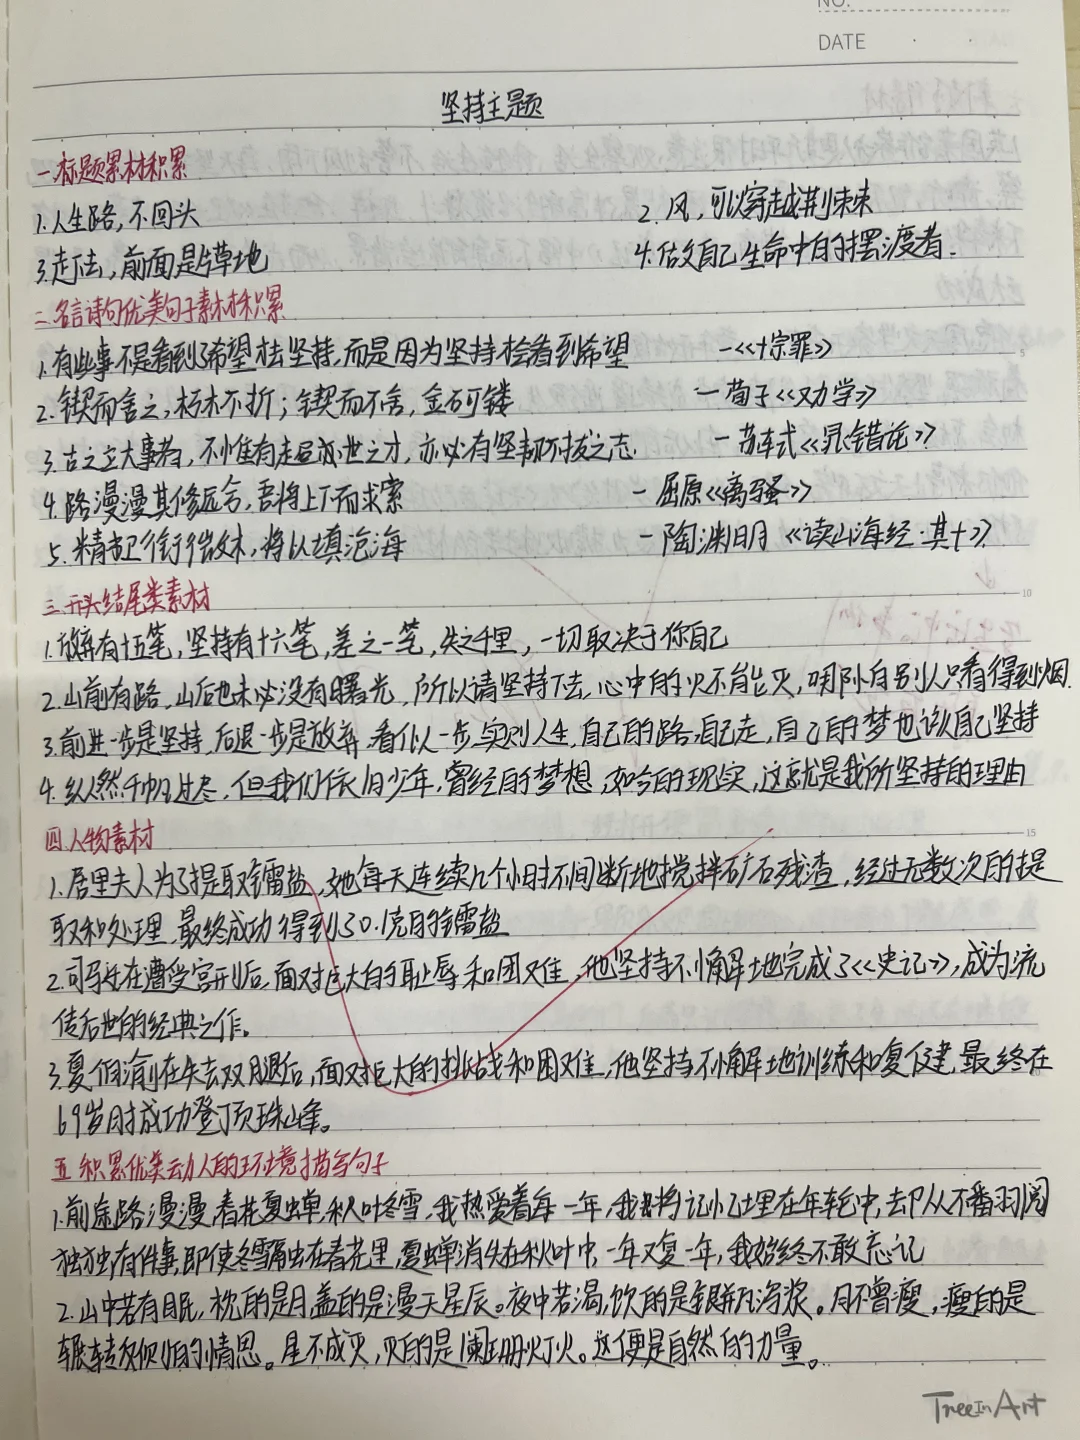 NO.
DATE
坚持主题
一.标题素材积累
1.人生路,不回头
2.风,可以穿越荆棘
3.走下去,前面是草地
4.做自己生命中的摆渡者.
二.名言诗句优美句子素材积累
1.有些事不是看到了希望去坚持,而是因为坚持才会看到希望 —《十宗罪》
2.锲而舍之,朽木不折;锲而不舍,金石可镂 —荀子《劝学》
3.古之立大事者,不惟有超世之才,亦必有坚韧不拔之志. —苏轼《晁错论》
4.路漫漫其修远兮,吾将上下而求索 —屈原《离骚》
5.精卫衔微木,将以填沧海 —陶渊明《读山海经·其十》
三.开头结尾类素材
1.放弃有十五笔,坚持有十六笔,差之一笔,失之千里,一切取决于你自己
2.山前有路,山后也未必没有曙光,所以请坚持下去,心中的火不能灭,哪怕别人只看得到烟.
3.前进一步是坚持,后退一步是放弃,看似一步,实则人生,自己的路,自己走,自己的梦也该自己坚持
4.纵然千帆过尽,但我们依旧少年,曾经的梦想,如今的现实,这就是我所坚持的理由
四.人物素材
1.居里夫人为了提取镭盐,她每天连续几个小时不间断地搅拌矿石残渣,经过无数次的提
取和处理,最终成功得到0.1克的镭盐
2.司马迁在遭受宫刑后,面对巨大的耻辱和困难,他坚持不懈地完成了《史记》,成为流
传后世的经典之作。
3.夏伯渝在失去双腿后,面对巨大的挑战和困难,他坚持不懈地训练和复健,最终在
69岁时成功登顶珠峰。
五.积累优美动人的环境描写句子
1.前途路漫漫,春花夏蝉,秋叶冬雪,我热爱着每一年,我将记忆埋在年轮中,却从不翻阅
独独有件事,即使冬雪融在春花里,夏蝉消失在秋叶中,一年又复一年,我始终不敢忘记
2.山中若有眠,枕的是月,盖的是漫天星辰。夜中若渴,饮的是银瓶泻浆。月不曾瘦,瘦的是
辗转反侧的情思。星不成灭,灭的是阑珊灯火。这便是自然的力量。
TreeInArt